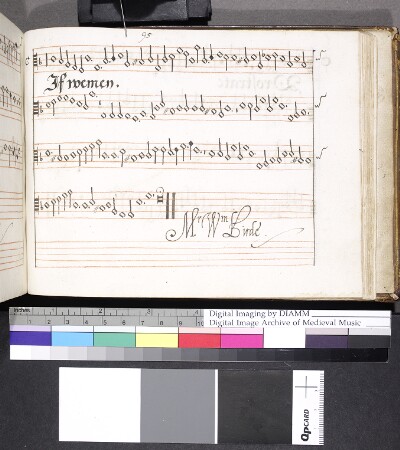 95
If wemen.
Mr Wm Birde.
inches 1 2 3 4
1 2 3 4 5 6 7 8 9 10
Digital Imaging by DIAMM
Digital Image Archive of Medieval Music
QPCARD